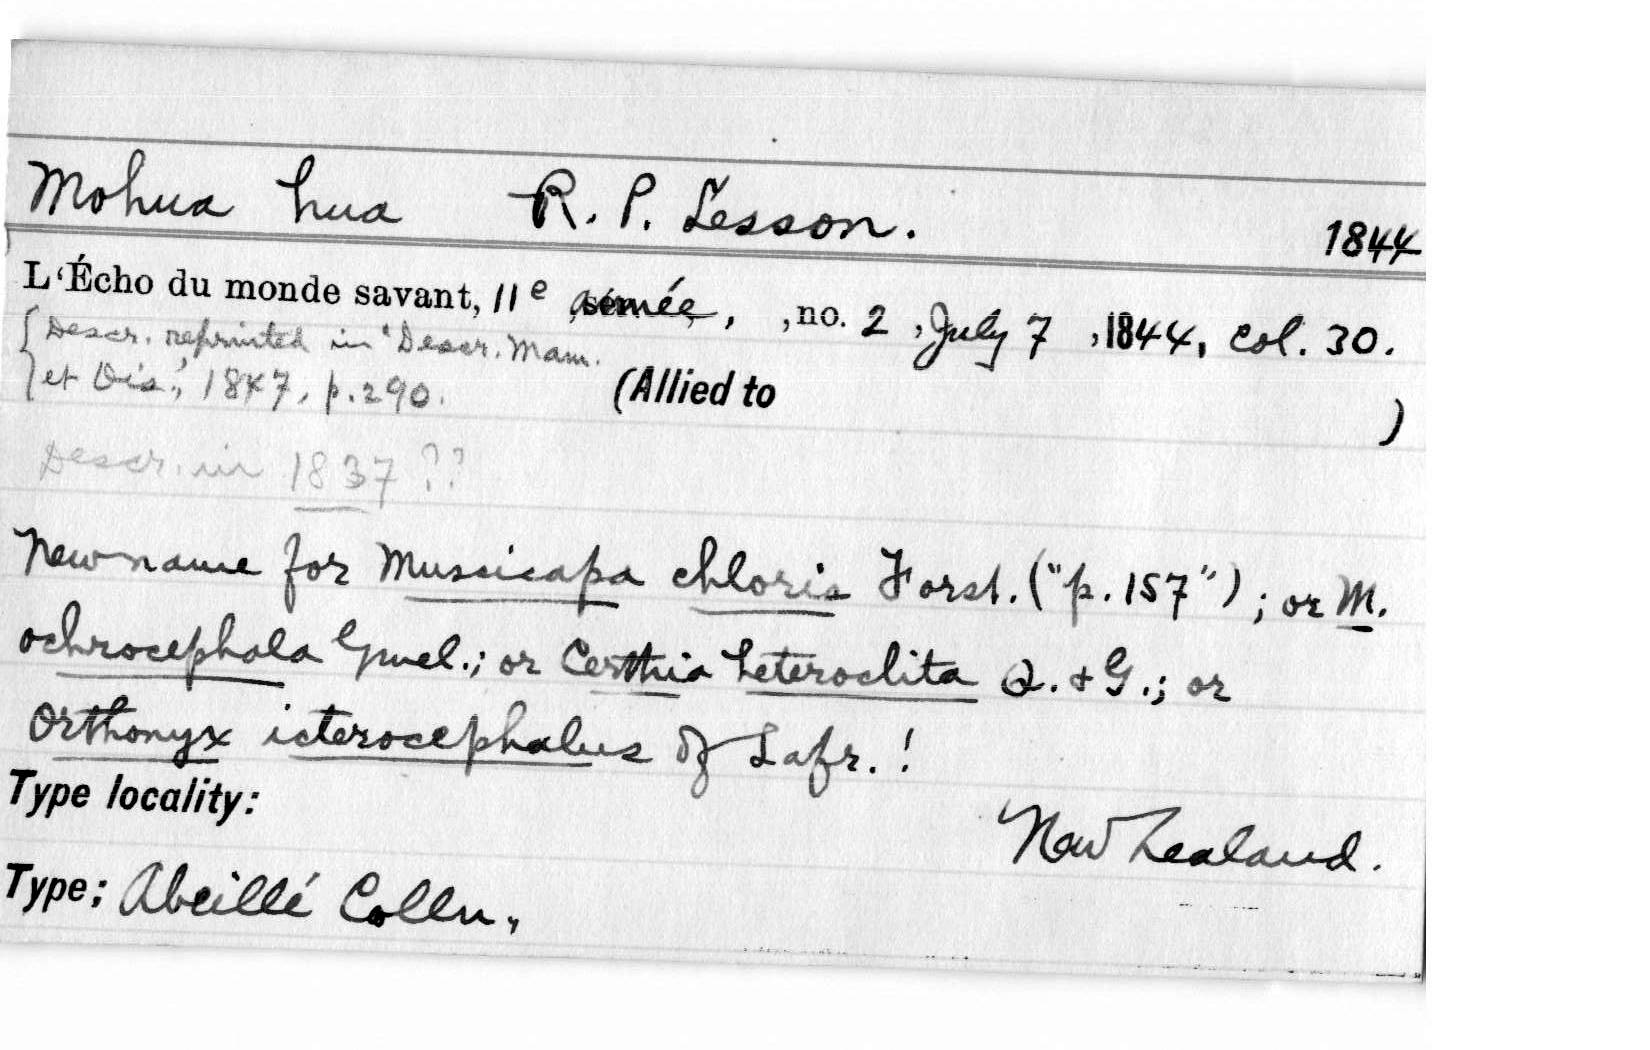 Mohua hua R. P. Lesson. 1844
L'Écho du monde savant, 11e année, , no. 2 , July 7 , 1844, col. 30.
{ Descr. reprinted in "Descr. Mam.
et Ois.", 1847, p. 290.
(Allied to )
Descr. in 1837 ??
New name for Muscicapa chloris Forst. ("p. 157") ; or M.
ochrocephala Gmel.; or Certhia heteroclita Q. & G.; or
Orthonyx icterocephalus of Lafr. !
Type locality:
New Zealand.
Type; Abeillé Colln,